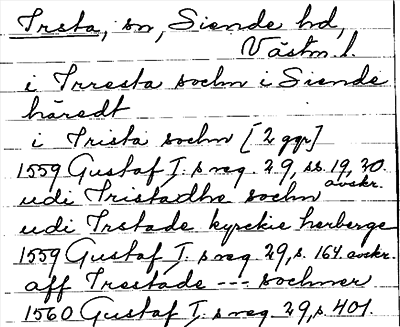 Irsta, sn, Siende hd,
Västm. l.
i Irresta sochn i Siende
häredt
i Irista sochn [2 ggr]
1559 Gustaf I. s reg. 29, ss. 19, 20.
avskr.
udi Iristadhe sochn
udi Irstade kyrckie herberge
1559 Gustaf I. s reg. 29, s. 164 avskr.
aff Irestade --- sochner
1560 Gustaf I. s reg. 29, s. 401.